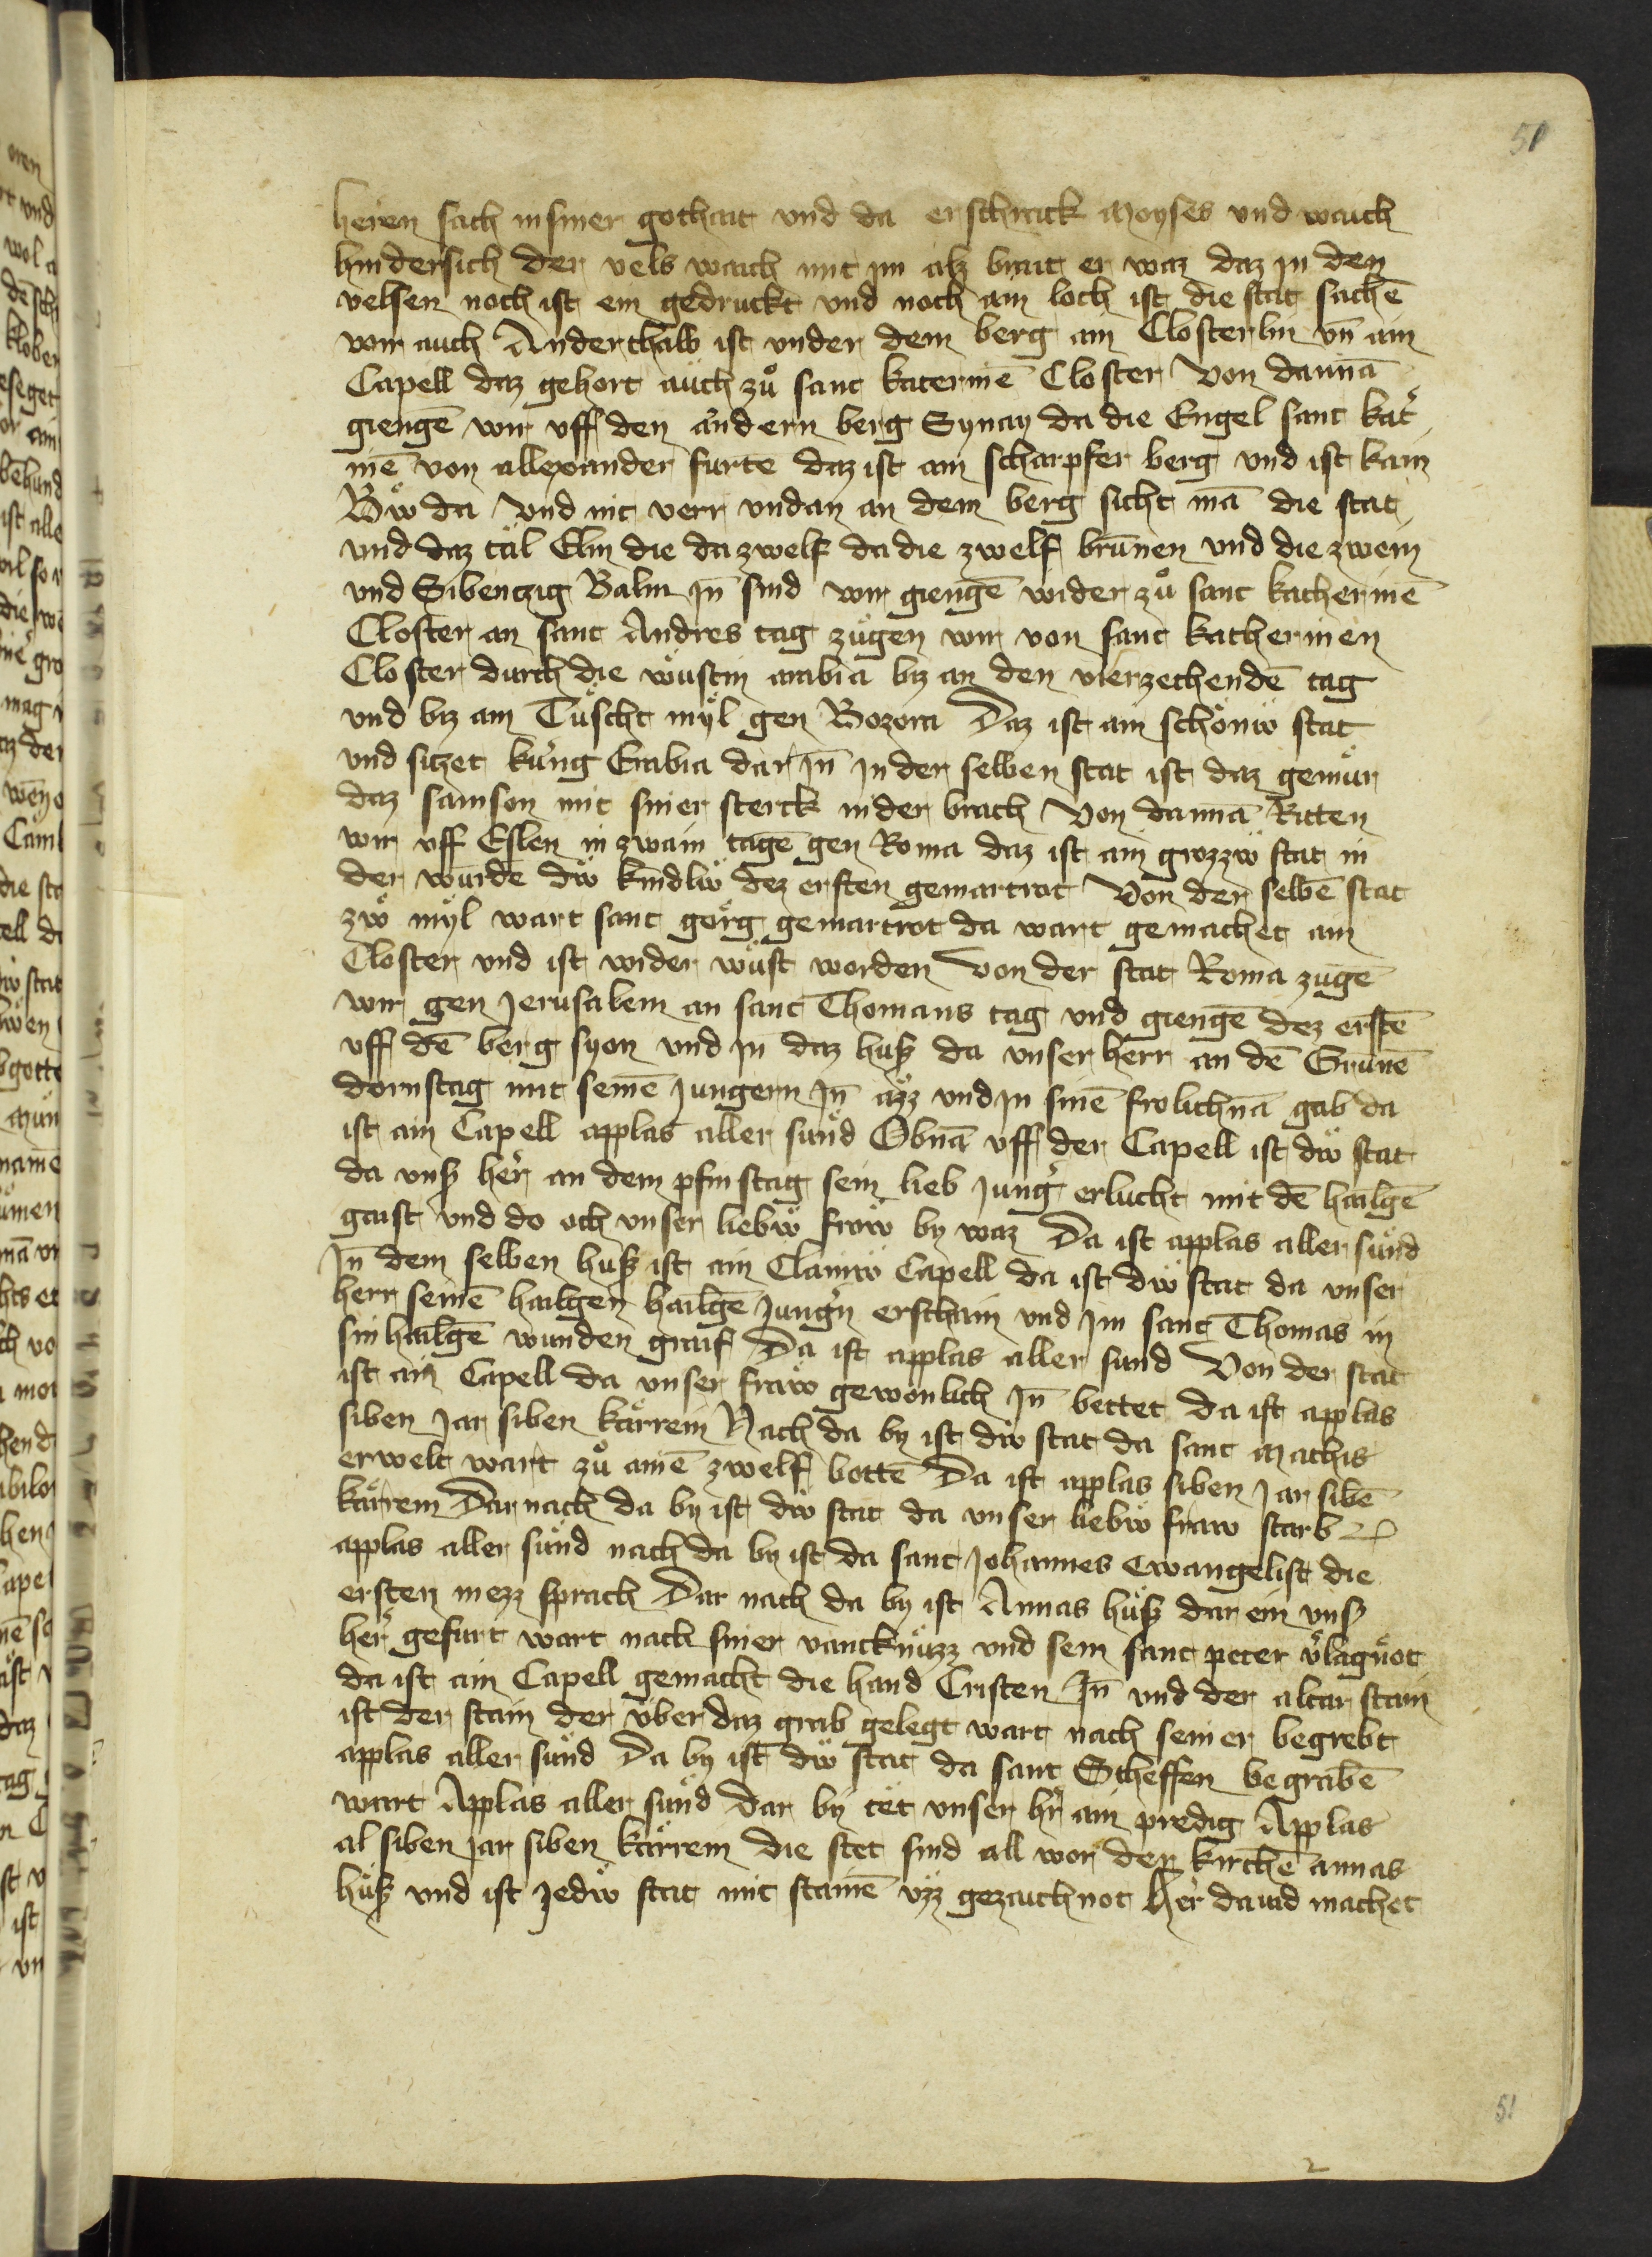 51
heren sach in siner gothait vnd da erschrack moyses vnd waich
hindersich der vels waich mit im alz brait er waz daz in den
velsen noch ist ein gedruckt vnd noch ain loch ist die stat sachē
wir auch Anderthalb ist vnder dem berg ain Closterlin vn̄ ain
Capell daz gehort auch zů sant katerinē Closter Von dannā
giengē wir vff den andern berg Synay da die Engel sant kat͛
inē von allexander furtē daz ist ain scharpfer berg vnd ist kain
Bẅ da vnd nit verr vndan an dem berg sicht mā die stat
vnd daz tăl Elin die da zwelf da die zwelf brūnen vnd die zwein
vnd Sibentzig Balm jn̄ sind wir giengē wider zů sant katherinē
Closter an sant Andres tag zugen wir von sant katherinen
Closter durch die wůstin arabia biz an den vierzechendē tag
vnd biz ain Tüscht myl gen Bozora Daz ist ain schönẅ stat
vnd sitzet küng Erabia dar jn̄ jn der selben stat ist daz gemür
daz samson mit siner sterck nider brach Von dannā Ritten
wir vff Eslen in zwain tagē gen Roma daz ist ain grozzẅ stat in
der wurdē dẅ kindlẅ dez ersten gemartrat Von der selbē stat
zwo myl wart sant görg gemartrot da wart gemachet ain
Closter vnd ist wider wüst worden Von der stat Roma zugē
wir gen Jerusalem an sant Thomans tag vnd giengē dez erstē
vff dē berg syon vnd jn daz huß da vnser herr an dē Grunē
dornstag mit seinē jungern jn̄ äzz vnd jn sinē frolichnā gab da
ist ain Capell applas aller sünd Obnā vff der Capell ist dẅ stat
da vnß her͛ an dem pfinstag sein lieb jung͛ erlucht mit dē hailgē
gaist vnd do och vnser liebẅ frow by waz Da ist applas aller sünd
Jn dem selben huß ist ain Clainẅ Capell da ist dẅ stat da vnser
herr seinē hailgen hailgē jung͛n erschain vnd jm sant Thomas in
sin hailgē wunden graif Da ist applas aller sund Von der stat
ist ain Capell da vnser fraw gewonlich jn̄ bettet da ist applas
siben jar siben kärrein Nach da by ist dẅ stat da sant mathis
erwelt wart zů ainē zwelf bottē Da ist applas siben jar sibē
kärrein Dar nach da by ist dẅ stat da vnser liebẅ fraw starb
applas aller sünd nach da by ist da sant johannes ewangelist die
ersten mezz sprach Dar nach da by ist Annas huß dar ein vnß
her͛ gefürt wart nach siner vancknüzz vnd sein sant peter v͛lagnot
da ist ain Capell gemacht die hand Cristen jn̄ vnd der altar stain
ist der stain der über daz grab gelegt wart nach seiner begrebt
applas aller sünd Da by ist dẅ stat da sant Stheffen begrabē
wart Applas aller sünd Dar by tet vnser hr͛ ain predig Applas
al siben jar siben kärrein die stet sind all vor der kirchē annas
huß vnd ist jedẅ stat mit stainē vzz gezaichnot her͛ dauid machet
51